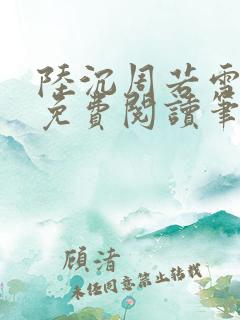 陸沉周若雪
免費閱讀筆
顧清
未经同意禁止转载